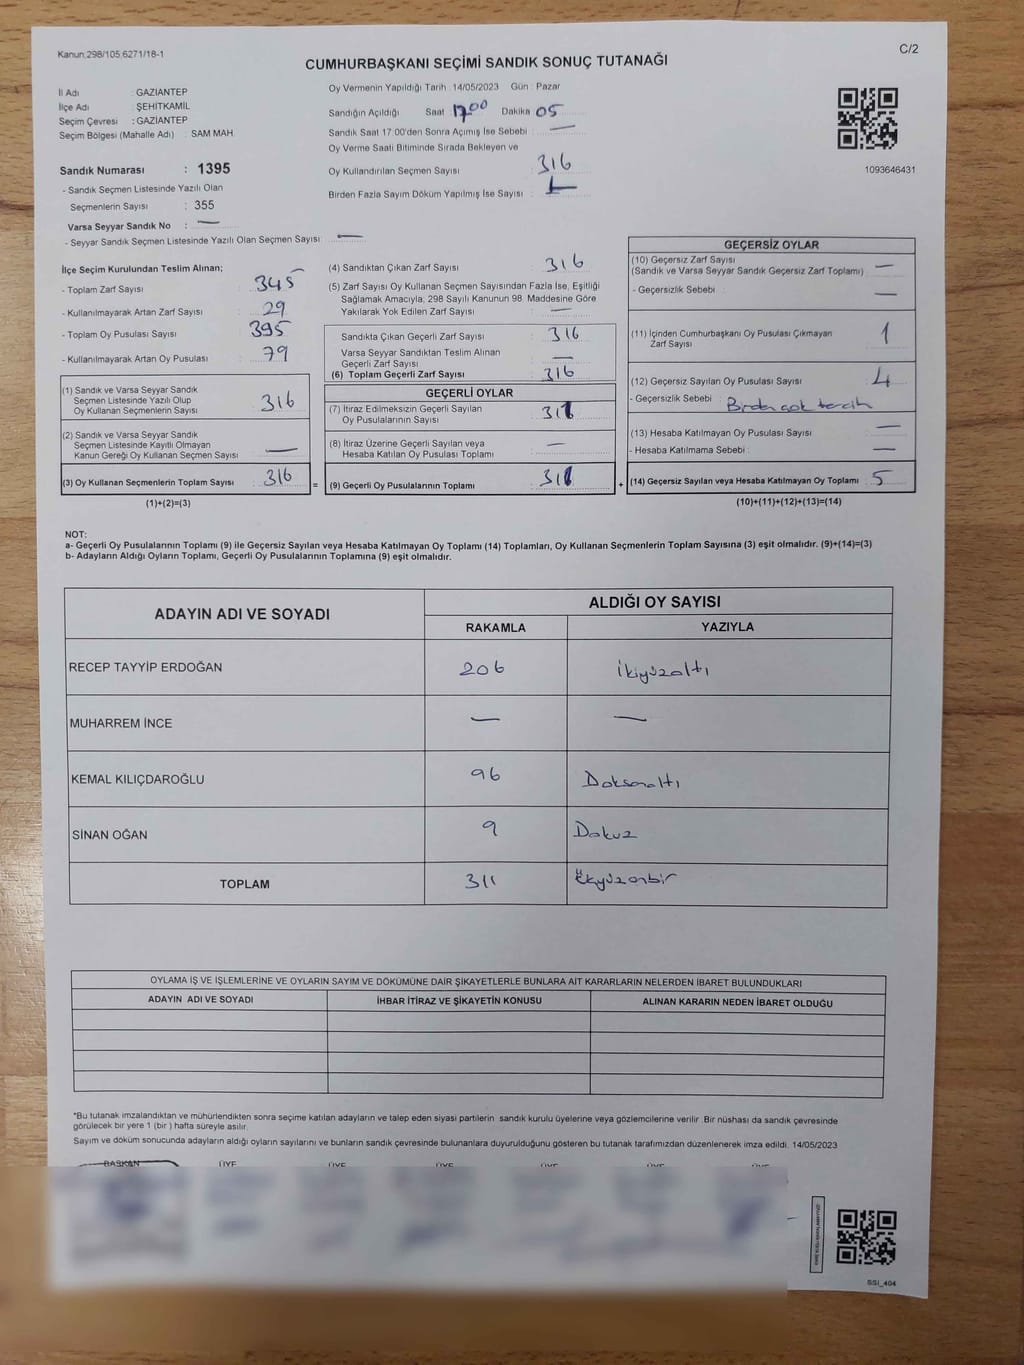 Kanun;298/105;6271/18-1
C/2
CUMHURBAŞKANI SEÇİMİ SANDIK SONUÇ TUTANAĞI
İl Adı : GAZIANTEP
İlçe Adı : ŞEHİTKAMİL
Seçim Çevresi : GAZİANTEP
Seçim Bölgesi (Mahalle Adı) : SAM MAH.
Sandık Numarası : 1395
- Sandık Seçmen Listesinde Yazılı Olan
Seçmenlerin Sayısı : 355
Varsa Seyyar Sandık No : —
- Seyyar Sandık Seçmen Listesinde Yazılı Olan Seçmen Sayısı : —
Oy Vermenin Yapıldığı Tarih : 14/05/2023 Gün : Pazar
Sandığın Açıldığı Saat 17:00 Dakika 05
Sandık Saat 17.00'den Sonra Açılmış İse Sebebi : —
Oy Verme Saati Bitiminde Sırada Bekleyen ve
Oy Kullandırılan Seçmen Sayısı : 316
Birden Fazla Sayım Döküm Yapılmış İse Sayısı :
1093646431
İlçe Seçim Kurulundan Teslim Alınan;
- Toplam Zarf Sayısı : 345
- Kullanılmayarak Artan Zarf Sayısı : 29
- Toplam Oy Pusulası Sayısı : 395
- Kullanılmayarak Artan Oy Pusulası : 79
(1) Sandık ve Varsa Seyyar Sandık
Seçmen Listesinde Yazılı Olup
Oy Kullanan Seçmenlerin Sayısı : 316
(2) Sandık ve Varsa Seyyar Sandık
Seçmen Listesinde Kayıtlı Olmayan
Kanun Gereği Oy Kullanan Seçmen Sayısı : —
(3) Oy Kullanan Seçmenlerin Toplam Sayısı : 316
(1)+(2)=(3)
(4) Sandıktan Çıkan Zarf Sayısı : 316
(5) Zarf Sayısı Oy Kullanan Seçmen Sayısından Fazla İse, Eşitliği
Sağlamak Amacıyla, 298 Sayılı Kanunun 98. Maddesine Göre
Yakılarak Yok Edilen Zarf Sayısı : —
Sandıkta Çıkan Geçerli Zarf Sayısı : 316
Varsa Seyyar Sandıktan Teslim Alınan
Geçerli Zarf Sayısı : —
(6) Toplam Geçerli Zarf Sayısı : 316
GEÇERLİ OYLAR
(7) İtiraz Edilmeksizin Geçerli Sayılan
Oy Pusulalarının Sayısı : 311
(8) İtiraz Üzerine Geçerli Sayılan veya
Hesaba Katılan Oy Pusulası Toplamı : —
= (9) Geçerli Oy Pusulalarının Toplamı : 311
GEÇERSİZ OYLAR
(10) Geçersiz Zarf Sayısı
(Sandık ve Varsa Seyyar Sandık Geçersiz Zarf Toplamı) : —
- Geçersizlik Sebebi : —
(11) İçinden Cumhurbaşkanı Oy Pusulası Çıkmayan
Zarf Sayısı : 1
(12) Geçersiz Sayılan Oy Pusulası Sayısı : 4
- Geçersizlik Sebebi : Birden çok tercih
(13) Hesaba Katılmayan Oy Pusulası Sayısı : —
- Hesaba Katılmama Sebebi : —
+ (14) Geçersiz Sayılan veya Hesaba Katılmayan Oy Toplamı : 5
(10)+(11)+(12)+(13)=(14)
NOT:
a- Geçerli Oy Pusulalarının Toplamı (9) ile Geçersiz Sayılan veya Hesaba Katılmayan Oy Toplamı (14) Toplamları, Oy Kullanan Seçmenlerin Toplam Sayısına (3) eşit olmalıdır. (9)+(14)=(3)
b- Adayların Aldığı Oyların Toplamı, Geçerli Oy Pusulalarının Toplamına (9) eşit olmalıdır.
ADAYIN ADI VE SOYADI ALDIĞI OY SAYISI
RAKAMLA YAZIYLA
RECEP TAYYİP ERDOĞAN 206 İkiyüzaltı
MUHARREM İNCE — —
KEMAL KILIÇDAROĞLU 96 Doksanaltı
SİNAN OĞAN 9 Dokuz
TOPLAM 311
OYLAMA İŞ VE İŞLEMLERİNE VE OYLARIN SAYIM VE DÖKÜMÜNE DAİR ŞİKAYETLERLE BUNLARA AİT KARARLARIN NELERDEN İBARET BULUNDUKLARI
ADAYIN ADI VE SOYADI İHBAR İTİRAZ VE ŞİKAYETİN KONUSU ALINAN KARARIN NEDEN İBARET OLDUĞU
*Bu tutanak imzalandıktan ve mühürlendikten sonra seçime katılan adayların ve talep eden siyasi partilerin sandık kurulu üyelerine veya gözlemcilerine verilir. Bir nüshası da sandık çevresinde
görülecek bir yere 1 (bir ) hafta süreyle asılır.
Sayım ve döküm sonucunda adayların aldığı oyların sayılarını ve bunların sandık çevresinde bulunanlara duyurulduğunu gösteren bu tutanak tarafımızdan düzenlenerek imza edildi. 14/05/2023
BAŞKAN ÜYE ÜYE ÜYE ÜYE ÜYE ÜYE
SSI_404